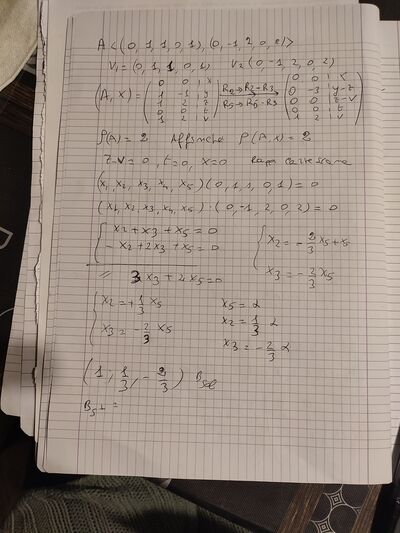 A < (0, 1, 1, 0, 1), (0, -1, 2, 0, 2)>
V₁ = (0, 1, 1, 0, 1) V₂ (0, -1, 2, 0, 2)
(A, X) = ( 0 0 | x ; 1 -1 | y ; 1 2 | z ; 0 0 | t ; 1 2 | v ) R₂→R₂-R₃ R₅→R₅-R₃ ( 0 0 | x ; 0 -3 | y-z ; 0 0 | z-v ; 0 0 | t ; 1 2 | v )
ρ(A) = 2 Affinché ρ(A, X) = 2
z-v = 0, t = 0, x = 0 Rapp cartesiana
(x₁, x₂, x₃, x₄, x₅) (0, 1, 1, 0, 1) = 0
(x₁, x₂, x₃, x₄, x₅) · (0, -1, 2, 0, 2) = 0
{ x₂ + x₃ + x₅ = 0 { x₂ = -2/3 x₅ + x₅
- x₂ + 2x₃ + x₅ = 0 x₃ = -2/3 x₅
// 3 x₃ + 2 x₅ = 0
{ x₂ = + 1/3 x₅ x₅ = α
x₃ = - 2/3 x₅ x₂ = 1/3 α
x₃ = - 2/3 α
(1, 1/3, - 2/3)
B_S⊥ =